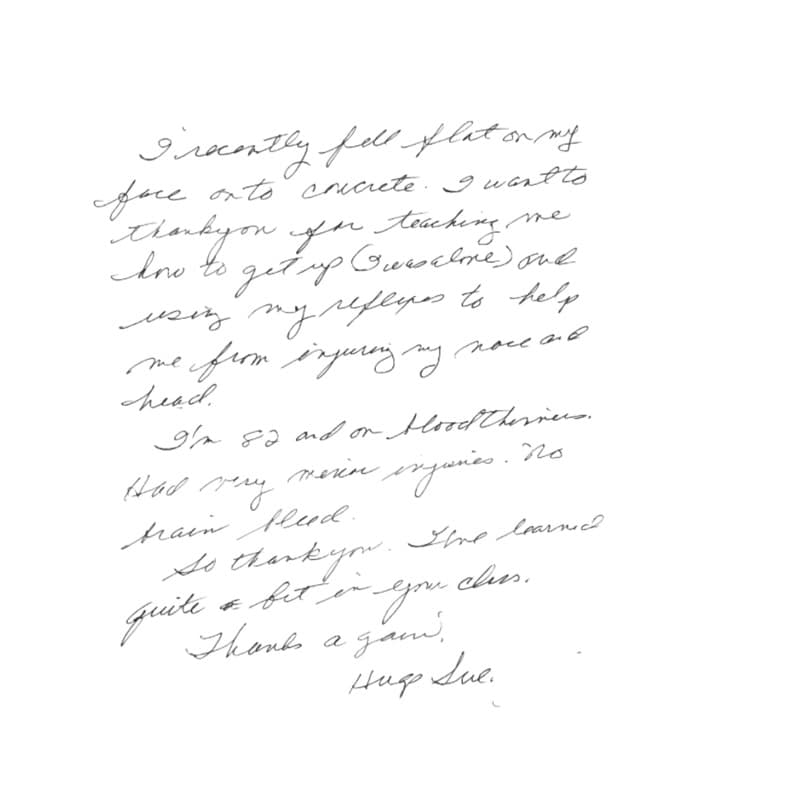 I recently fell flat on my
face onto concrete. I want to
thank you for teaching me
how to get up (I was alone) and
using my reflexes to help
me from injuring my nose and
head.
I'm 82 and on blood thinners.
Had very minor injuries. No
brain bleed.
So thank you. I've learned
quite a bit in your class.
Thanks again.
Hugs Sue.